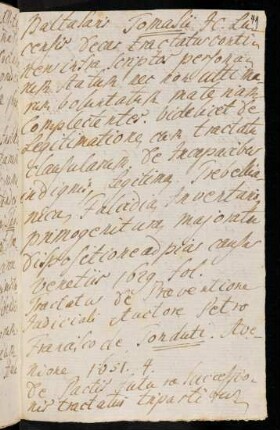 Baltasaris Tomasii JC. Lu 99
censis decas tractatus conti
nens in se scriptos personar
rum statum nec non ultima
rum voluntatum materiam
complectentes videlicet de
Legitimatione cum tractatu
clausularum, de Incapacibus
indignis, Legitima, Trebellia
nica, Falcidia, Inventario
primogenitura, majoratu
dispositione ad pias causas
Venetiis 1629. fol.
Tractatus de Preventione
Judiciali Auctore Petro
Francisco de Tonduti. Ave
nione 1651. 4.
De Pactis futura successio
nis tractatus tripartitus